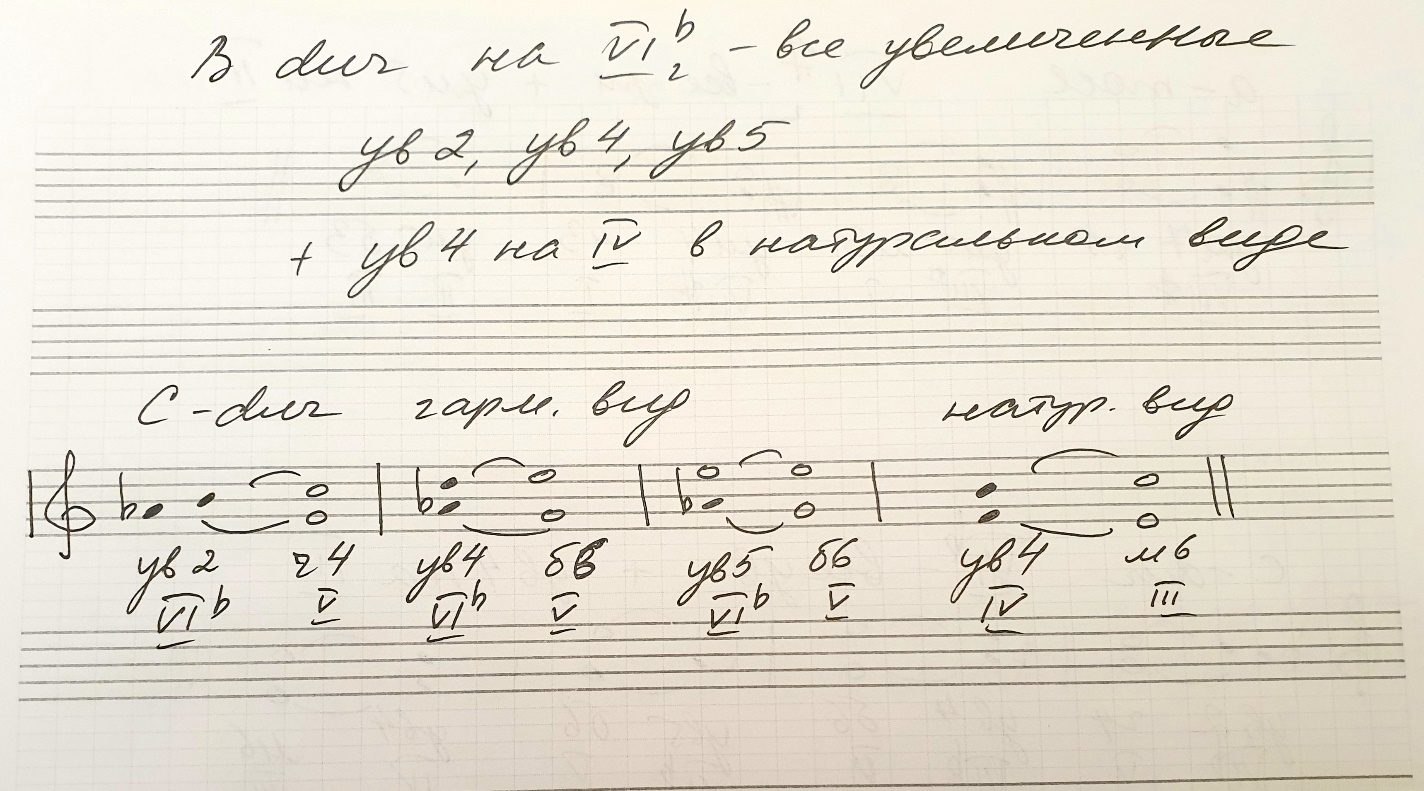 В dur на VI♭г - все увеличенные
ув 2, ув 4, ув 5
+ ув 4 на IV в натуральном виде
C-dur гарм. вид натур. вид
♭ ♭ ♭
ув 2 ч 4 ув 4 б6 ув 5 б6 ув 4 м 6
VI♭ V VI♭ V VI♭ V IV III